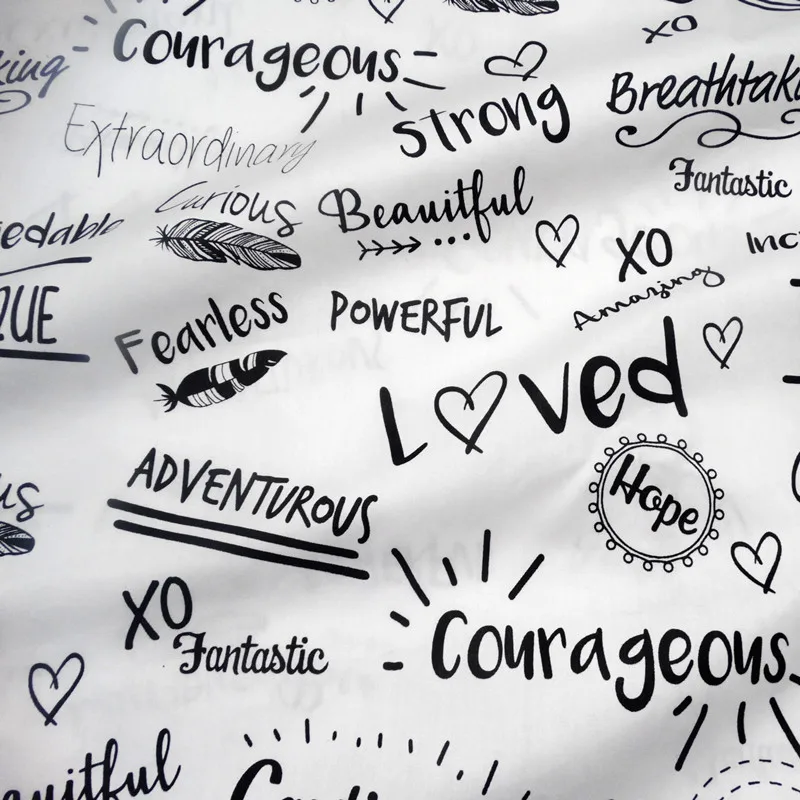 Courageous
king
XO
Strong
Breathtak
Extraordinary
Fantastic
Curious
Beauitful
edable
XO
Inc
Amazing
QUE
Fearless
POWERFUL
L♡ved
ADVENTUROUS
Hope
us
XO
Fantastic
Courageous
auitful